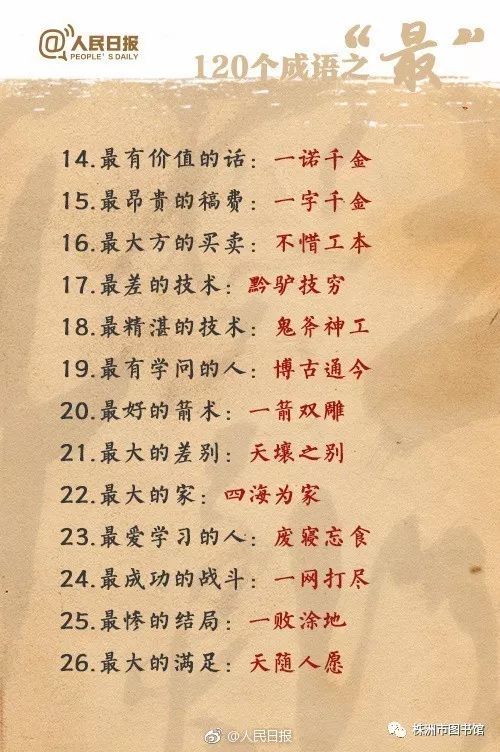 @人民日报
PEOPLE'S DAILY
120个成语之“最”
14.最有价值的话：一诺千金
15.最昂贵的稿费：一字千金
16.最大方的买卖：不惜工本
17.最差的技术：黔驴技穷
18.最精湛的技术：鬼斧神工
19.最有学问的人：博古通今
20.最好的箭术：一箭双雕
21.最大的差别：天壤之别
22.最大的家：四海为家
23.最爱学习的人：废寝忘食
24.最成功的战斗：一网打尽
25.最惨的结局：一败涂地
26.最大的满足：天随人愿
@人民日报
株洲市图书馆